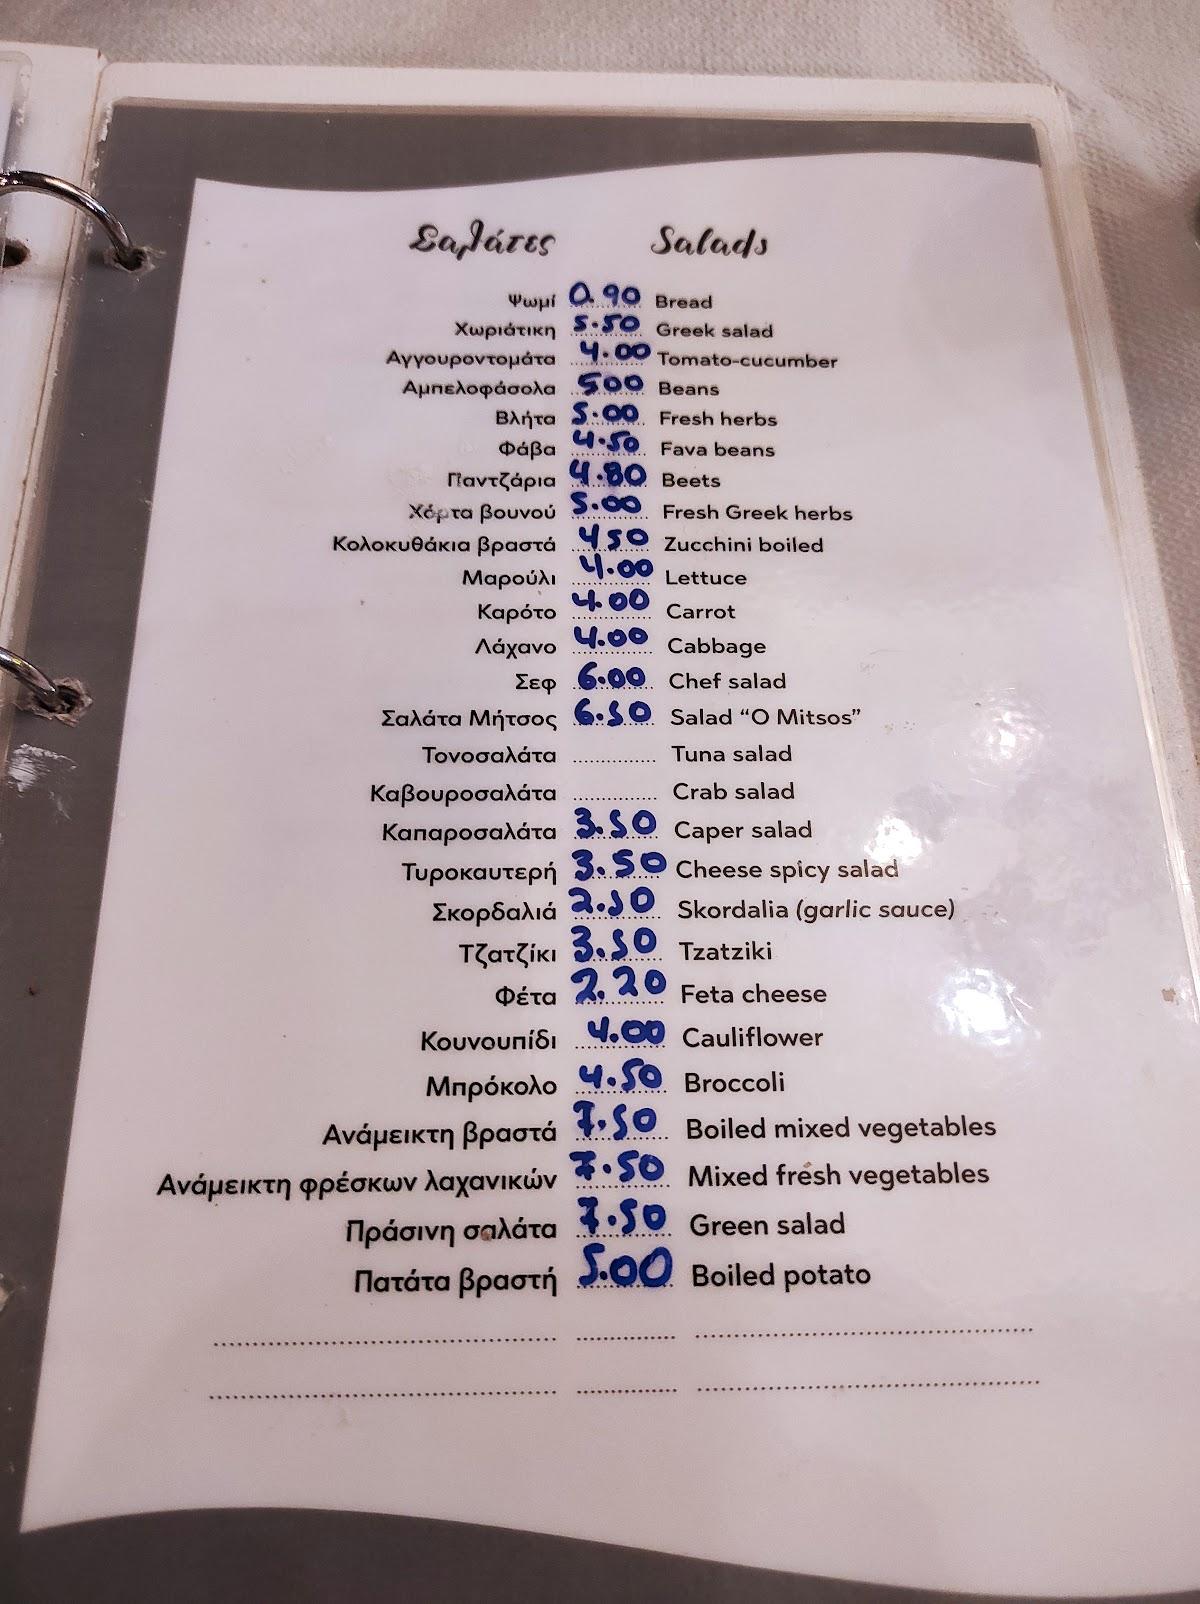 Σαλάτες Salads
Ψωμί 0.90 Bread
Χωριάτικη 5.50 Greek salad
Αγγουροντομάτα 4.00 Tomato-cucumber
Αμπελοφάσολα 500 Beans
Βλήτα 5.00 Fresh herbs
Φάβα 4.50 Fava beans
Παντζάρια 4.80 Beets
Χόρτα βουνού 5.00 Fresh Greek herbs
Κολοκυθάκια βραστά 450 Zucchini boiled
Μαρούλι 4.00 Lettuce
Καρότο 4.00 Carrot
Λάχανο 4.00 Cabbage
Σεφ 6.00 Chef salad
Σαλάτα Μήτσος 6.50 Salad “O Mitsos”
Τονοσαλάτα ............... Tuna salad
Καβουροσαλάτα ............... Crab salad
Καπαροσαλάτα 3.50 Caper salad
Τυροκαυτερή 3.50 Cheese spicy salad
Σκορδαλιά 2.50 Skordalia (garlic sauce)
Τζατζίκι 3.50 Tzatziki
Φέτα 2.20 Feta cheese
Κουνουπίδι 4.00 Cauliflower
Μπρόκολο 4.50 Broccoli
Ανάμεικτη βραστά 7.50 Boiled mixed vegetables
Ανάμεικτη φρέσκων λαχανικών 7.50 Mixed fresh vegetables
Πράσινη σαλάτα 7.50 Green salad
Πατάτα βραστή 5.00 Boiled potato